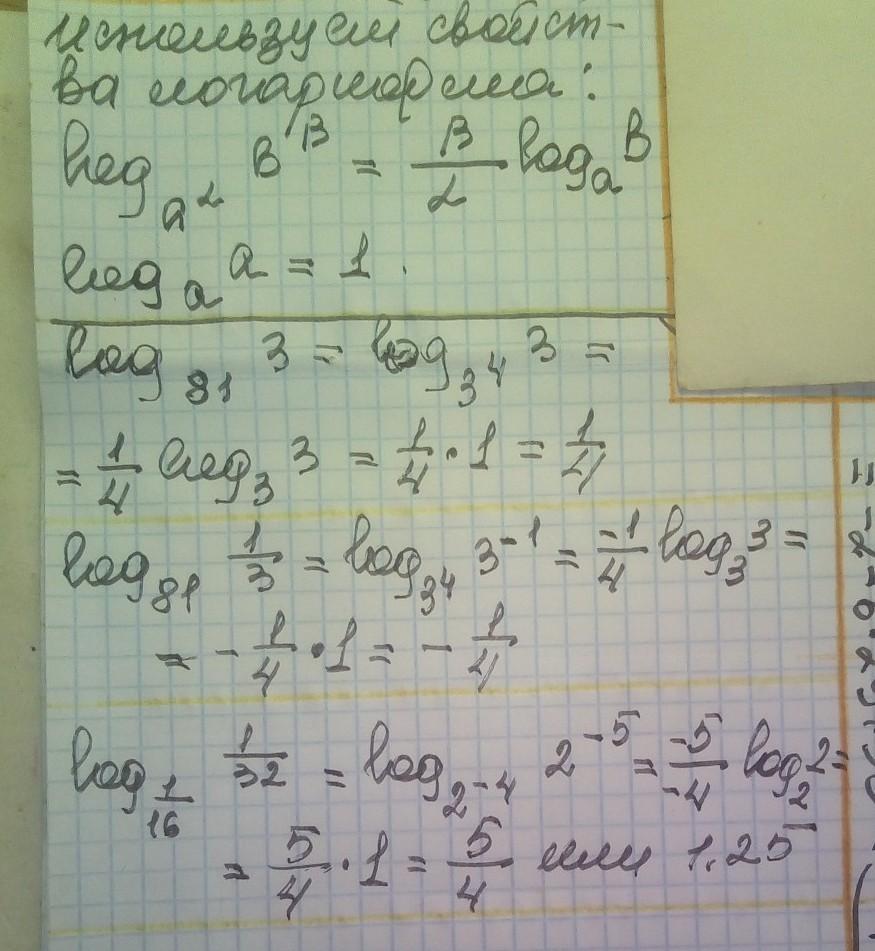 используем свойст-
ва логарифма:
log_{a^α} B^β = β/α log_a B
log_a a = 1.
log_{81} 3 = log_{3^4} 3 =
= 1/4 log_3 3 = 1/4 · 1 = 1/4
log_{81} 1/3 = log_{3^4} 3^{-1} = -1/4 log_3 3 =
= - 1/4 · 1 = - 1/4
log_{1/16} 1/32 = log_{2^{-4}} 2^{-5} = -5/-4 log_2 2 =
= 5/4 · 1 = 5/4 или 1.25